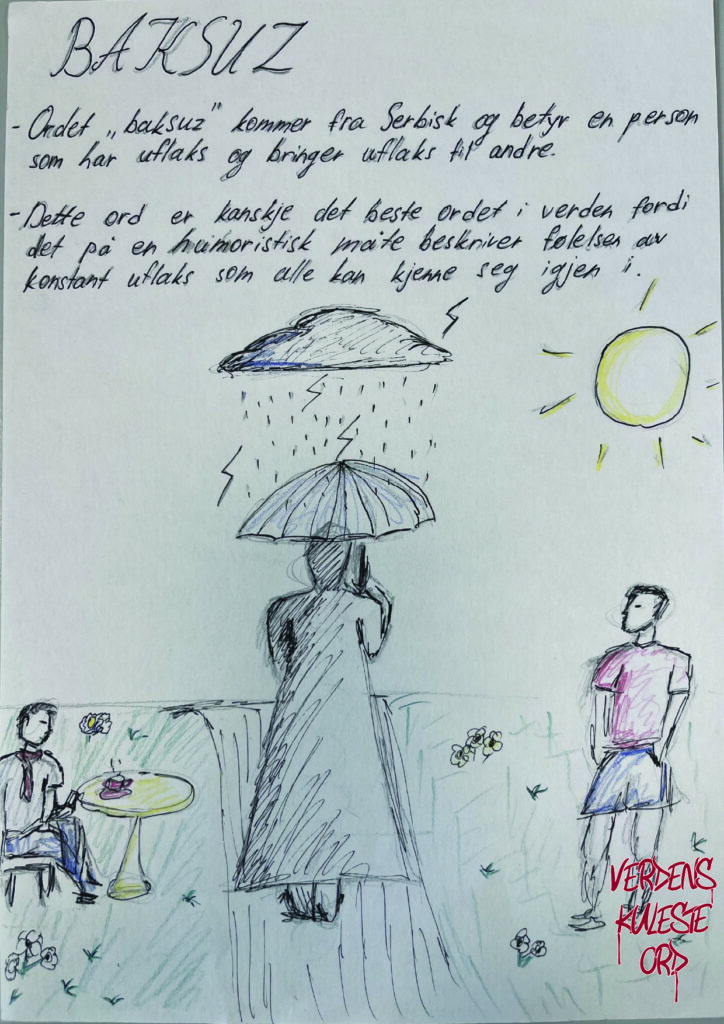 BAKSUZ
- Ordet „baksuz" kommer fra Serbisk og betyr en person
som har uflaks og bringer uflaks til andre.
- Dette ord er kanskje det beste ordet i verden fordi
det på en humoristisk måte beskriver følelsen av
konstant uflaks som alle kan kjenne seg igjen i.
VERDENS
KULESTE
ORD